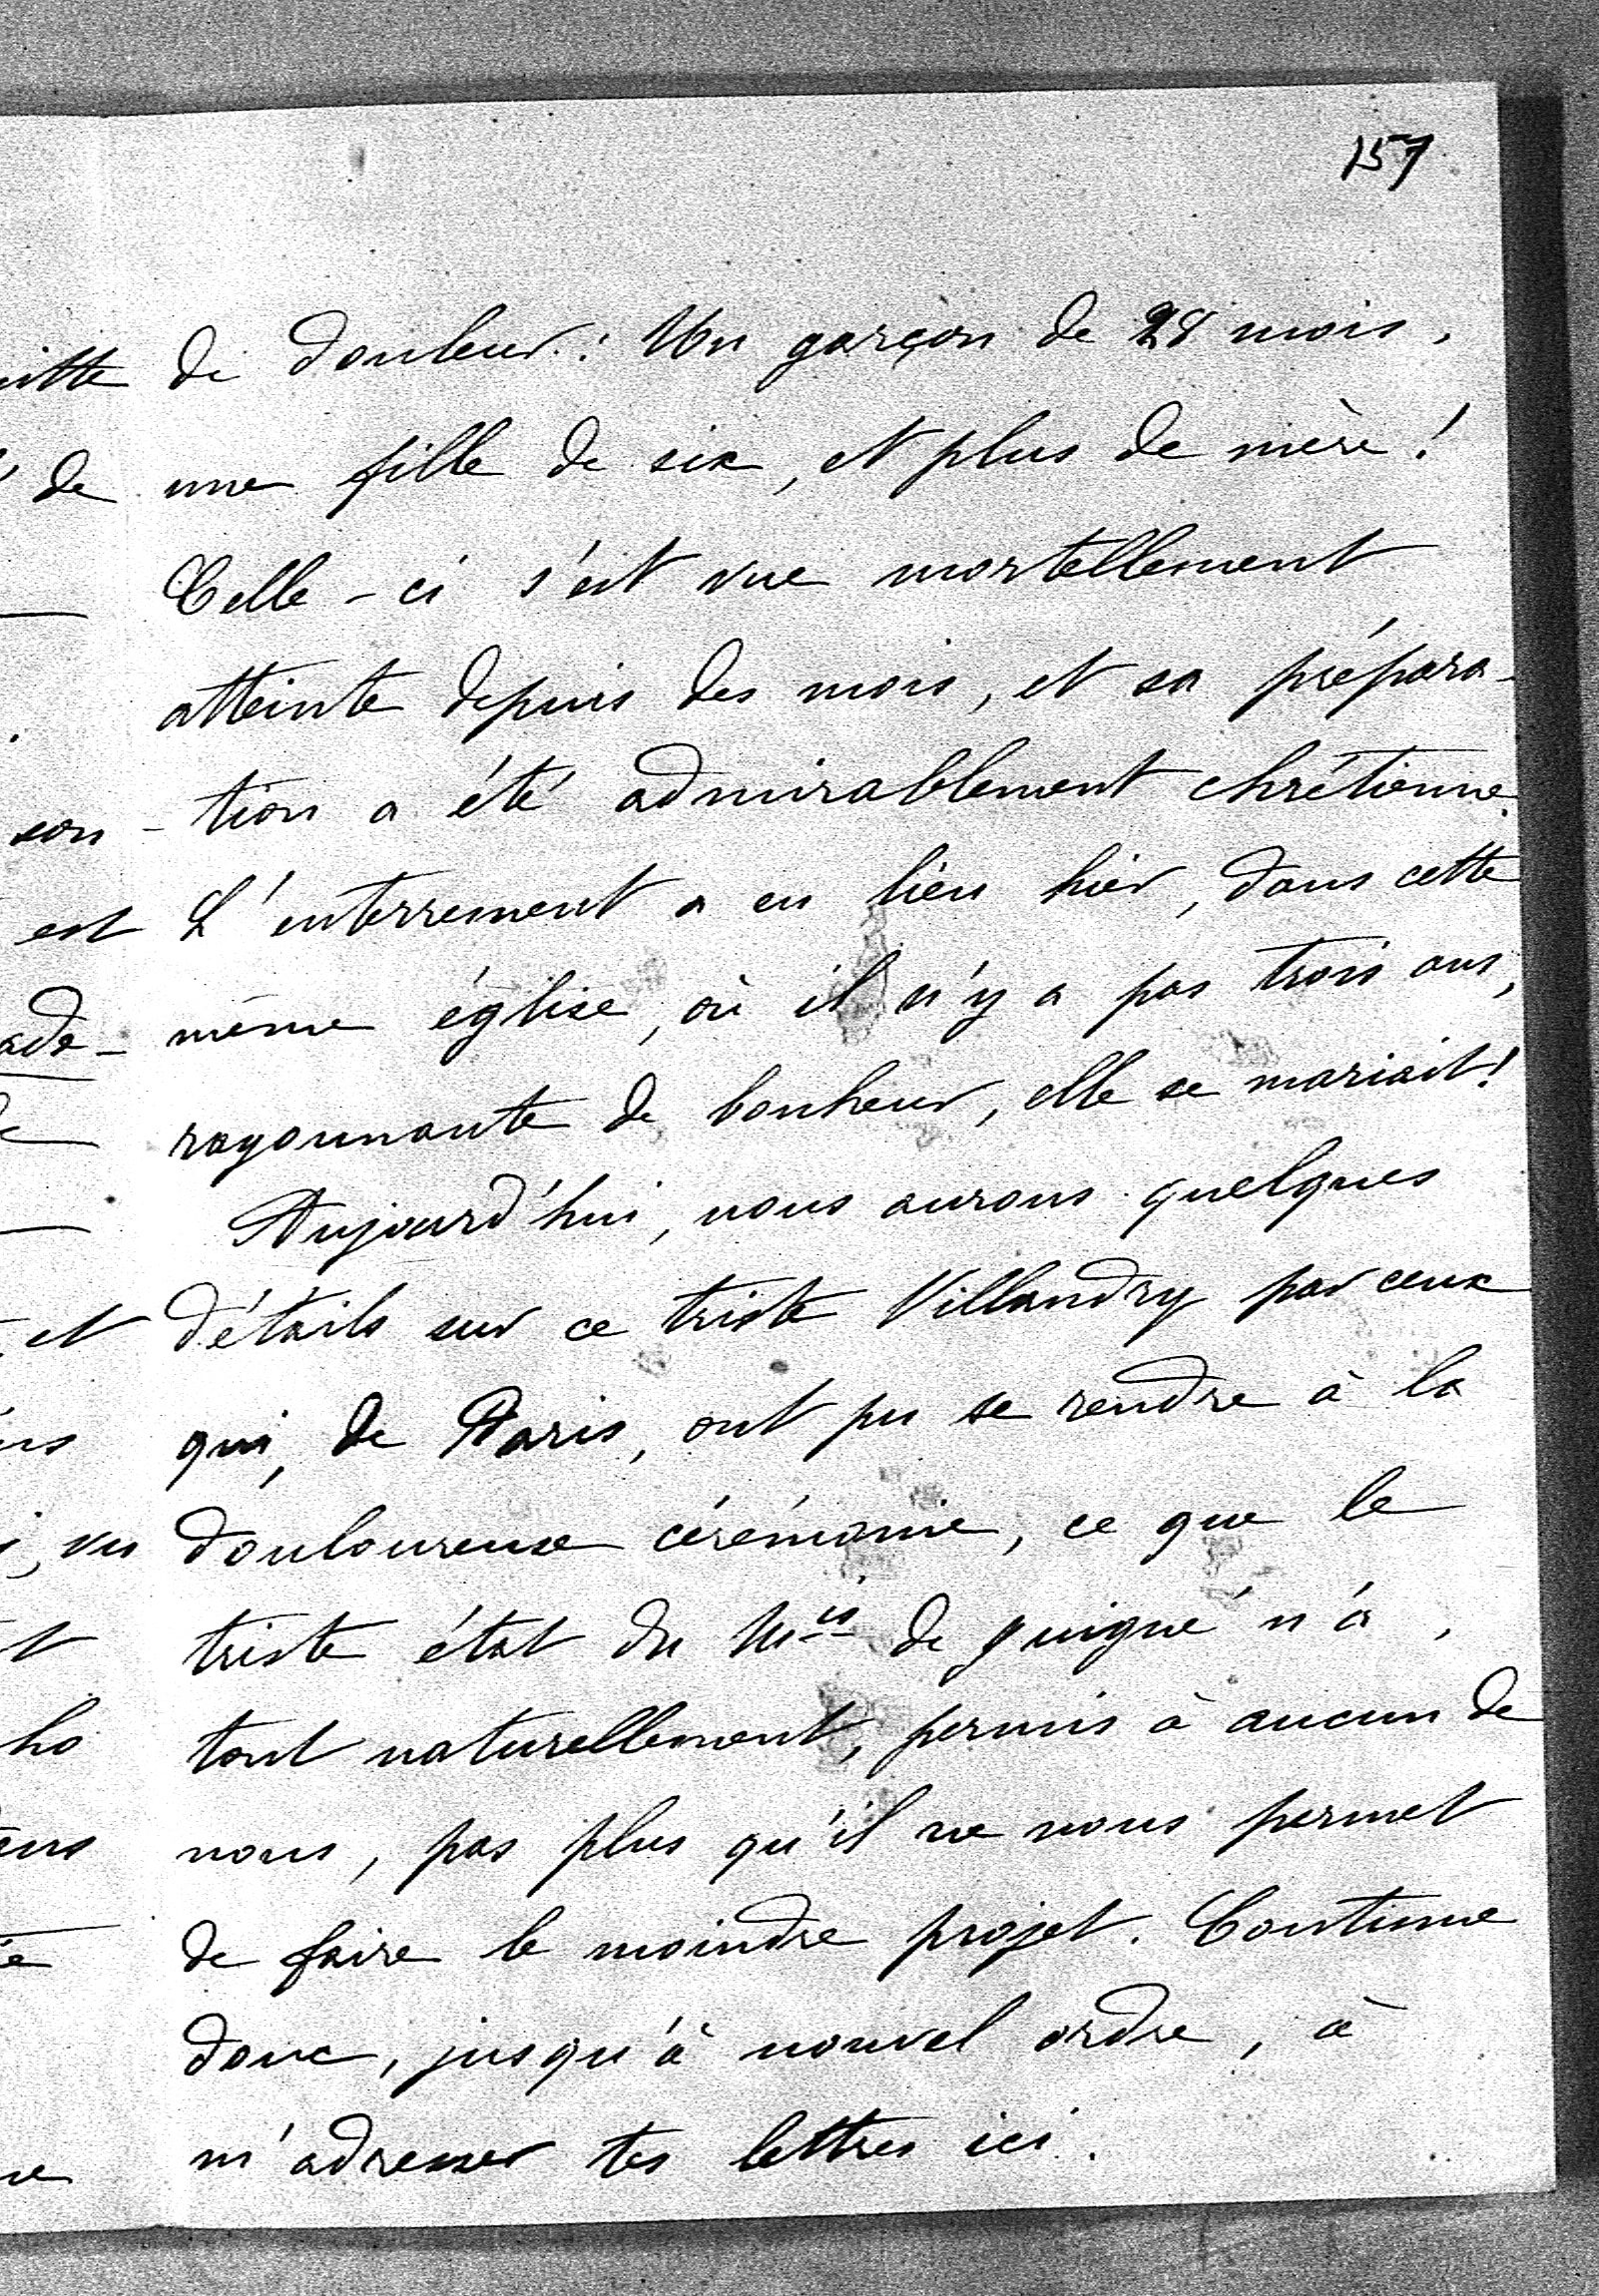 157
de douleur : Un garçon de 28 mois,
une fille de six, et plus de mère !
Celle-ci s'est vue mortellement
atteinte depuis des mois, et sa prépara-
-tion a été admirablement chrétienne.
L'enterrement a eu lieu hier, dans cette
même église, où il n'y a pas trois ans,
rayonnante de bonheur, elle se mariait !
Aujourd'hui, nous aurons quelques
détails sur ce triste Villandry par ceux
qui, de Paris, ont pu se rendre à la
douloureuse cérémonie, ce que le
triste état du Mis de juigné n'a,
tout naturellement, permis à aucun de
nous, pas plus qu'il ne nous permet
de faire le moindre projet. Continue
donc, jusqu'à nouvel ordre, à
m'adresser tes lettres ici.